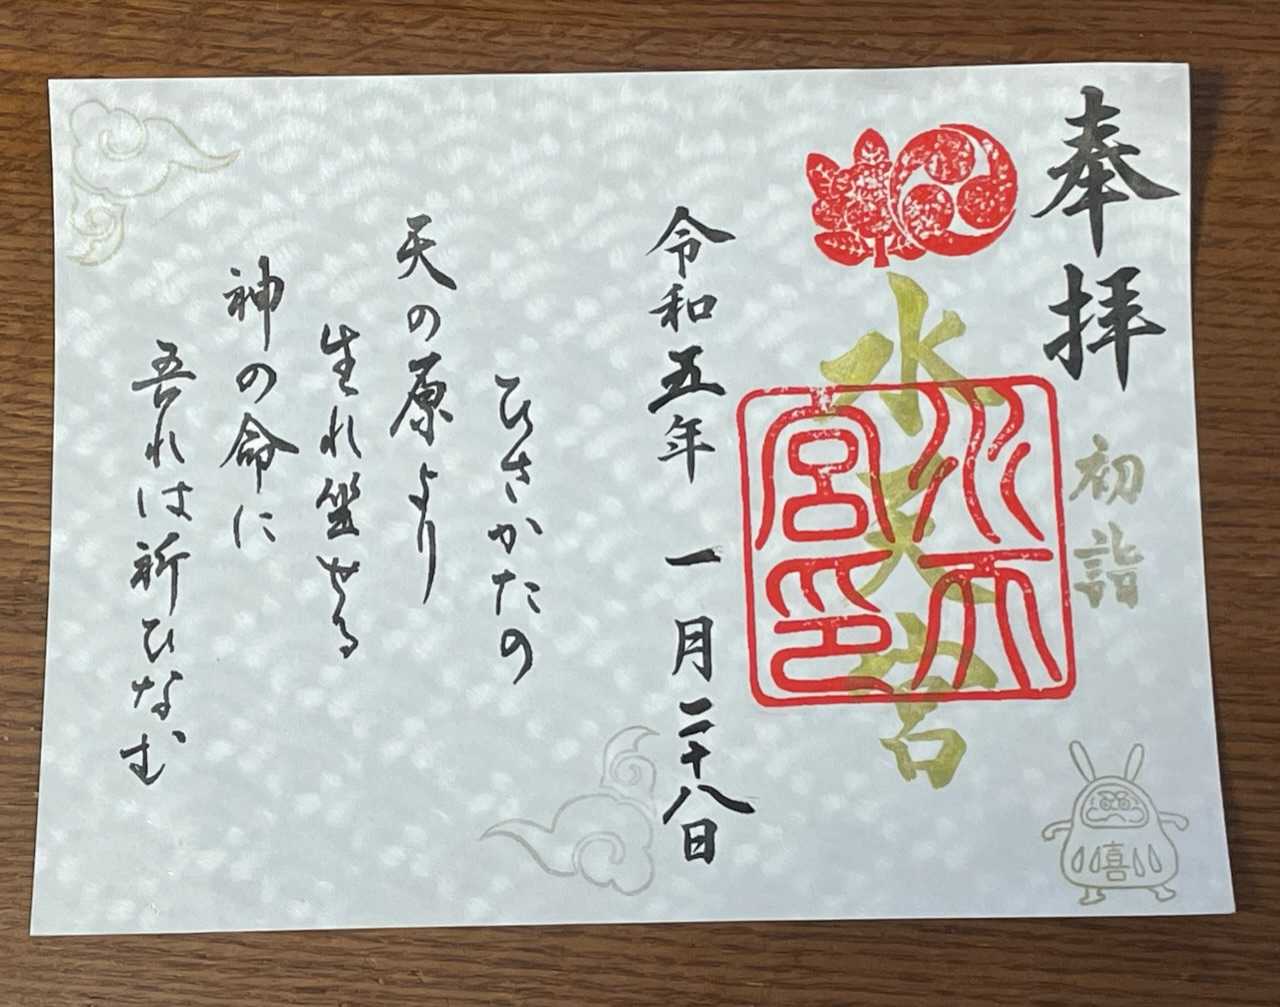 奉拝
初詣
水天宮
水天宮印
令和五年 一月二十八日
ひさかたの
天の原より
生れ坐せる
神の命に
吾れは祈ひなむ
喜